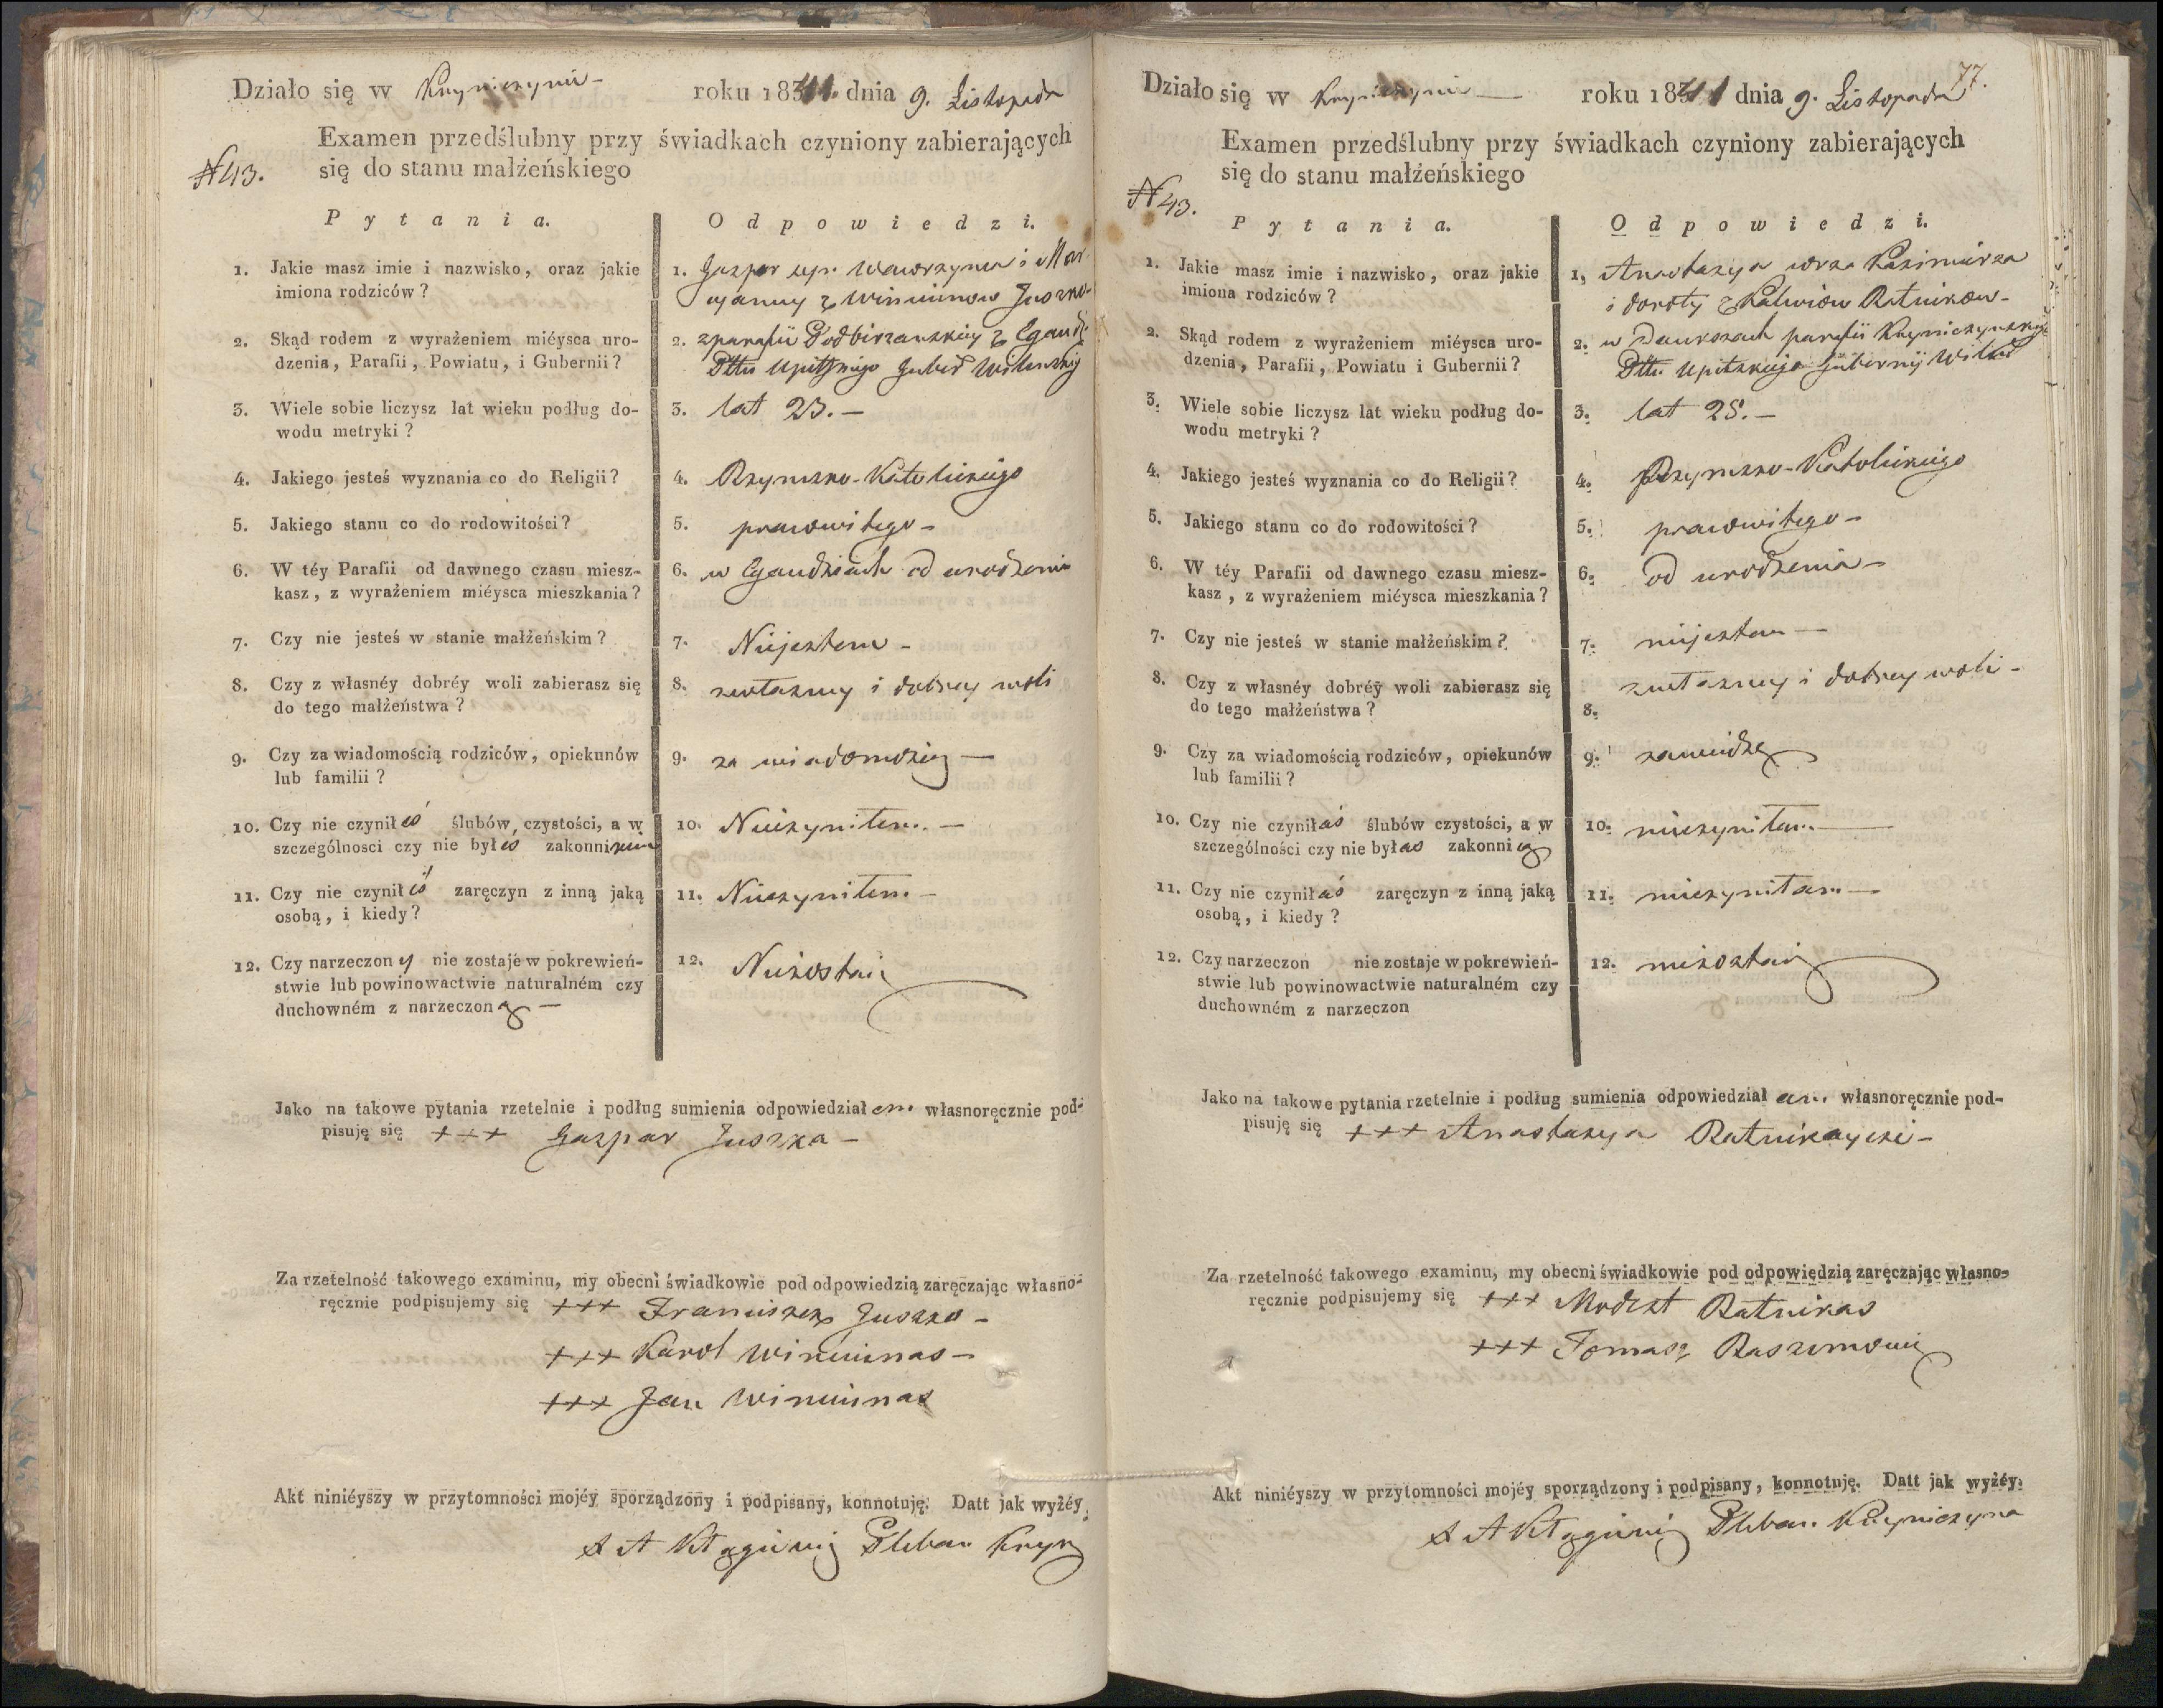 Działo się w Kryniczynie – roku 1841 dnia 9. Listopada
№ 43.
Examen przedślubny przy świadkach czyniony zabierających
się do stanu małżeńskiego
Pytania. Odpowiedzi.
1. Jakie masz imie i nazwisko, oraz jakie
imiona rodziców?
1. Gaspar syn Wawrzynca i Mar
yanny z Winciunow Juszko
2. Skąd rodem z wyrażeniem miéysca uro-
dzenia, Parafii, Powiatu, i Gubernii?
2. z parafii Podbirzanskiey z
Pttu Upitskiego Guber Wilenskiy
3. Wiele sobie liczysz lat wieku podług do-
wodu metryki?
3. lat 23. –
4. Jakiego jesteś wyznania co do Religii?
4. Rzymsko-Katolickiego
5. Jakiego stanu co do rodowitości?
5. prawowitego –
6. W téy Parafii od dawnego czasu miesz-
kasz, z wyrażeniem miéysca mieszkania?
6. w Egaudziach od urodzenia
7. Czy nie jesteś w stanie małżeńskim?
7. Niejestem –
8. Czy z własnéy dobréy woli zabierasz się
do tego małżeństwa?
8. zwłasney i dobrey woli
9. Czy za wiadomością rodziców, opiekunów
lub familii?
9. za wiadomością –
10. Czy nie czyniłeś ślubów, czystości, a w
szczególnosci czy nie byłes zakonnikiem
10. Nieczyniłem. –
11. Czy nie czyniłeś zaręczyn z inną jaką
osobą, i kiedy?
11. Nieczyniłem –
12. Czy narzeczony nie zostaje w pokrewień-
stwie lub powinowactwie naturalném czy
duchowném z narzeczoną –
12. Niezostaie
Jako na takowe pytania rzetelnie i podług sumienia odpowiedziałem własnoręcznie pod-
pisuję się +++ Gaspar Juszka –
Za rzetelność takowego examinu, my obecni świadkowie pod odpowiedzią zaręczając własno-
ręcznie podpisujemy się +++ Franciszek Juszko –
+++ Karol Winciunas –
+++ Jan Winciunas
Akt niniéyszy w przytomności mojéy sporządzony i podpisany, konnotuję. Datt jak wyżéy.
Pleban Kryn
77.
Działo się w Kryniczynie – roku 1841 dnia 9. Listopada
№ 43.
Examen przedślubny przy świadkach czyniony zabierających
się do stanu małżeńskiego
Pytania. Odpowiedzi.
1. Jakie masz imie i nazwisko, oraz jakie
imiona rodziców?
1. Anastazya Kazimierza
i doroty z Ratnikow –
2. Skąd rodem z wyrażeniem miéysca uro-
dzenia, Parafii, Powiatu i Gubernii?
2. w parafii Kryniczynskiey
Pttu Upitskiego Gubernij Wilen
3. Wiele sobie liczysz lat wieku podług do-
wodu metryki?
3. lat 25. –
4. Jakiego jesteś wyznania co do Religii?
4. Rzymsko-Katolickiego
5. Jakiego stanu co do rodowitości?
5. prawowitego –
6. W téy Parafii od dawnego czasu miesz-
kasz, z wyrażeniem miéysca mieszkania?
6. od urodzenia –
7. Czy nie jesteś w stanie małżeńskim?
7. niejestem –
8. Czy z własnéy dobréy woli zabierasz się
do tego małżeństwa?
8. zwłasney i dobrey woli –
9. Czy za wiadomością rodziców, opiekunów
lub familii?
9.
10. Czy nie czyniłaś ślubów czystości, a w
szczególności czy nie byłas zakonnicą
10. nieczyniłam –
11. Czy nie czyniłaś zaręczyn z inną jaką
osobą, i kiedy?
11. nieczyniłam –
12. Czy narzeczon nie zostaje w pokrewień-
stwie lub powinowactwie naturalném czy
duchowném z narzeczon
12. niezostaie
Jako na takowe pytania rzetelnie i podług sumienia odpowiedziałam własnoręcznie pod-
pisuję się +++ Anastazya Ratnikayci –
Za rzetelność takowego examinu, my obecni świadkowie pod odpowiedzią zaręczając własno-
ręcznie podpisujemy się +++ Modest Ratnikas
+++ Tomasz
Akt niniéyszy w przytomności mojéy sporządzony i podpisany, konnotuję. Datt jak wyżéy.
Pleban Kryniczyna